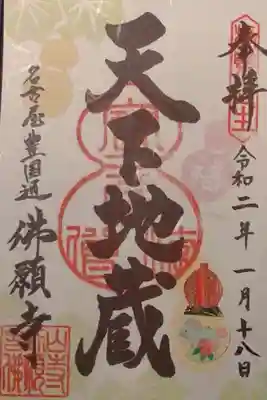 奉拝
令和二年一月十八日
天下地蔵
名古屋豊国通
佛願寺